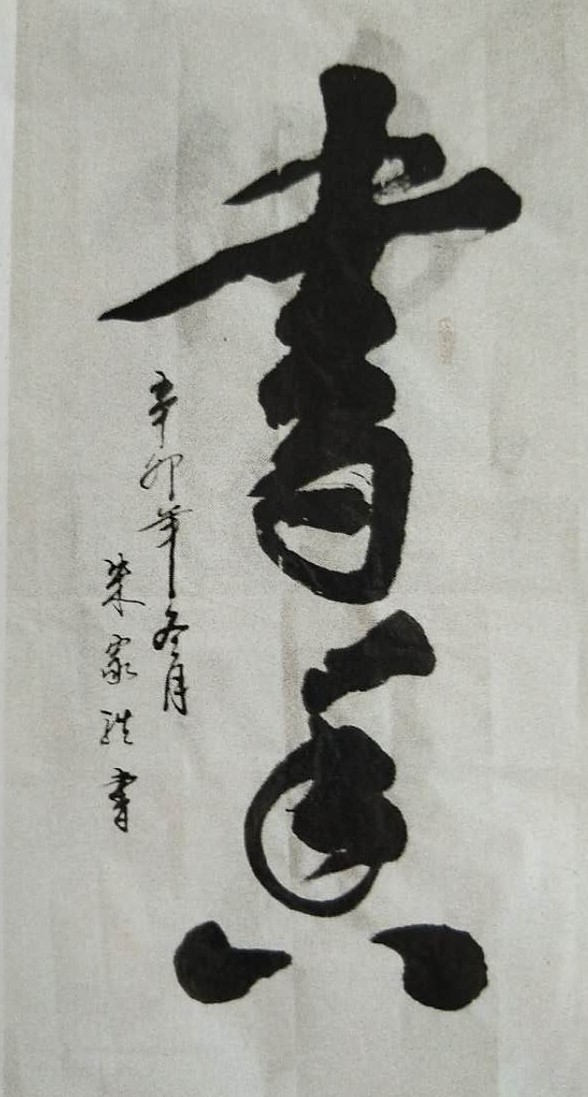 書真
辛卯年冬月
家 書